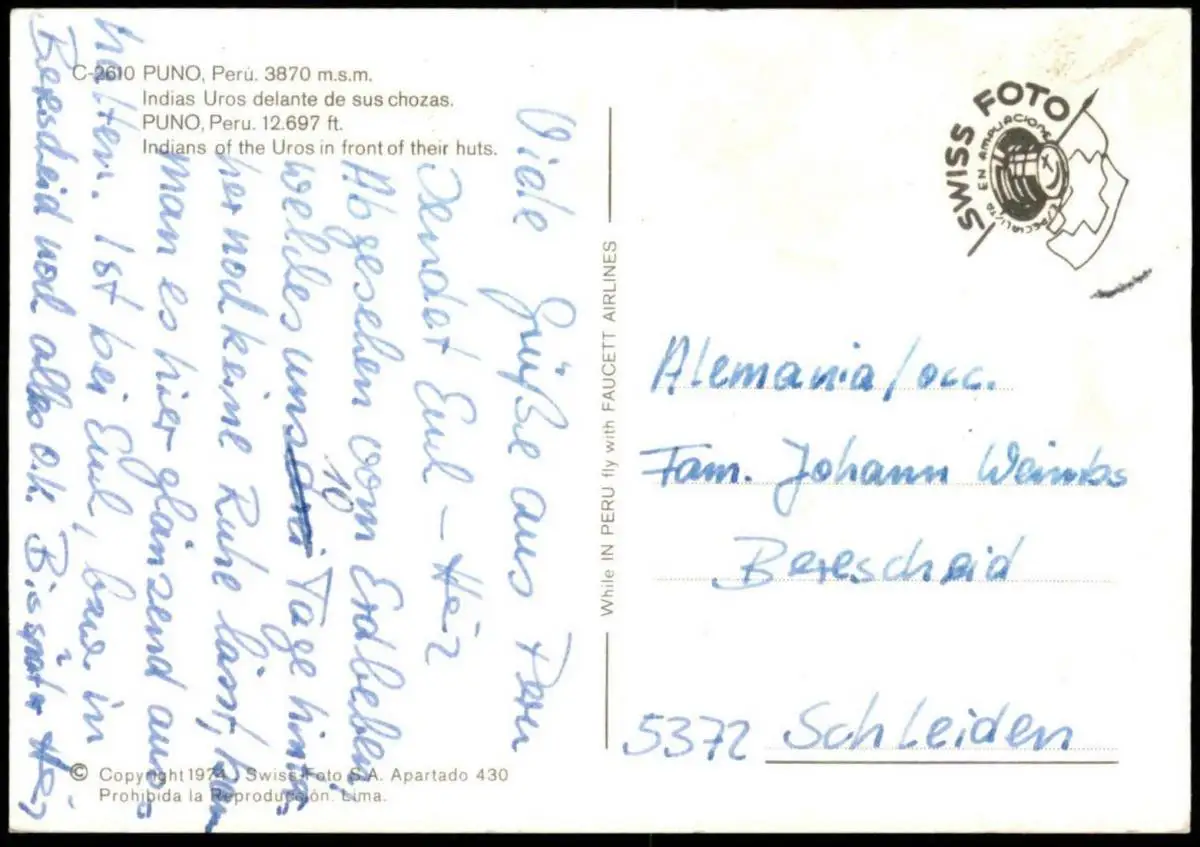 C-2610 PUNO, Perú. 3870 m.s.m.
Indias Uros delante de sus chozas.
PUNO, Peru. 12.697 ft.
Indians of the Uros in front of their huts.
Viele Grüße aus Peru
sendet Euch –
Abgesehen vom Erdbeben,
welches uns drei 10 Tage hinter-
her noch keine Ruhe lässt, kann
man es hier glänzend aus-
halten. Ist bei Euch, bzw in
Berescheid noch alles o.k. Bis später
© Copyright 1974 Swiss-Foto S.A. Apartado 430
Prohibida la Reproducción. Lima.
While IN PERU fly with FAUCETT AIRLINES
SWISS FOTO
ESPECIALISTA EN AMPLIACIONES
Alemania/occ.
Fam. Johann Weimbs
Berescheid
5372 Schleiden